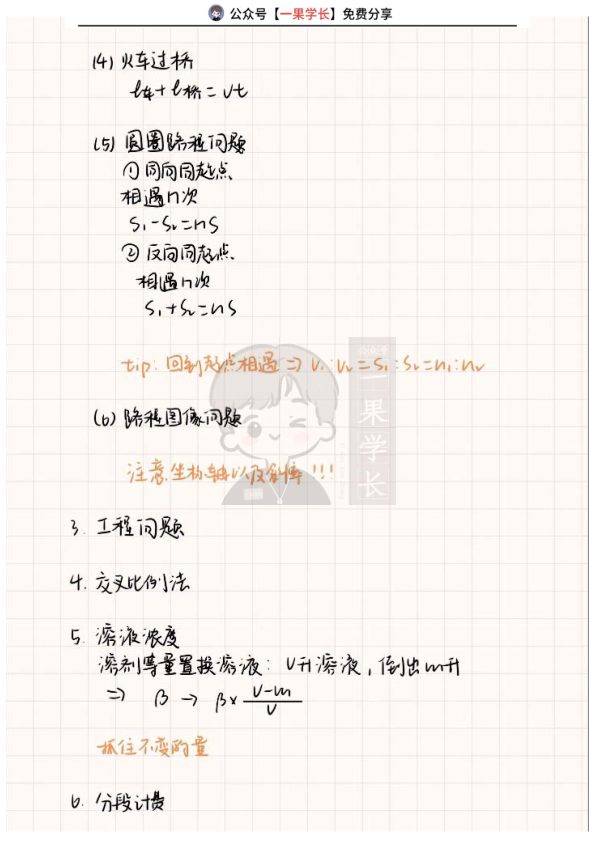 公众号【一果学长】免费分享
(4) 火车过桥
l车+l桥=vt
(5) 圆圈路程问题
① 同向同起点
相遇n次
S₁-S₂=nS
② 反向同起点
相遇n次
S₁+S₂=nS
tip: 回到起点相遇 ⇒ V₁:V₂=S₁:S₂=n₁:n₂
公众号
一果学长
(6) 路程图像问题
注意坐标轴以及斜率!!!
3. 工程问题
4. 交叉比例法
5. 溶液浓度
溶剂等量置换溶液: V升溶液, 倒出m升
⇒ β → β× (V-m)/V
抓住不变的量
6. 分段计费